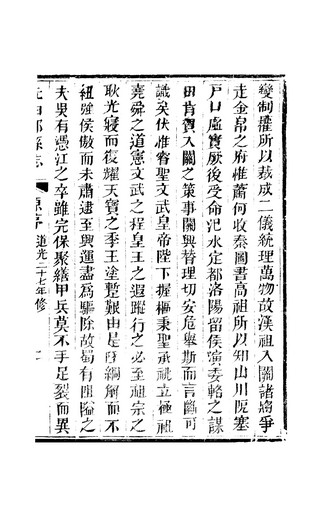 變制擢所以裁成二儀統理萬物故漢祖入關諸將爭
走金帛之府惟蕭何收秦圖書高祖所以知山川阨塞
戸口虛實厥後受命汜水定都洛陽留侯演委輅之謀
田肯賀入關之策事關興替理切安危舉斯而言斷可
識矣伏惟睿聖文武皇帝陛下握樞秉聖承祧立極祖
堯舜之道憲文武之程皇王之遐蹤行之必至祖宗之
耿光寢而復耀天寶之季王塗暫艱由是綱解而不
紐強侯傲而未肅逮至興運盡為驅除故蜀有阻隘之
夫吳有憑江之卒雖完保聚繕甲兵莫不手足裂而異
元和郡縣志 原序 道光二十七年修